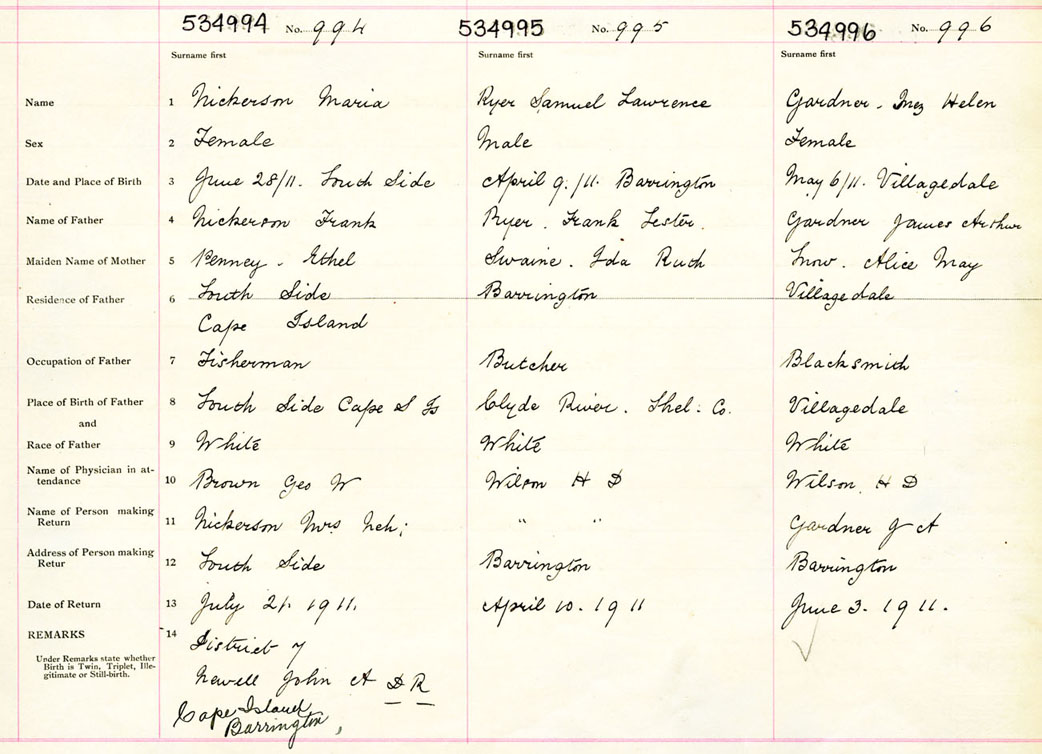 534994 No. 994 534995 No. 995 534996 No. 996
Surname first Surname first Surname first
Name 1 Nickerson Maria Ryer Samuel Lawrence Gardner. Inez Helen
Sex 2 Female Male Female
Date and Place of Birth 3 June 28/11. South Side April 9./11. Barrington May 6/11. Villagedale
Name of Father 4 Nickerson Frank Ryer. Frank Lester. Gardner James Arthur
Maiden Name of Mother 5 Penney. Ethel Swaine. Ida Ruth Snow. Alice May
Residence of Father 6 South Side Barrington Villagedale
Cape Island
Occupation of Father 7 Fisherman Butcher Blacksmith
Place of Birth of Father 8 South Side Cape S Is Clyde River. Shel. Co. Villagedale
and
Race of Father 9 White White White
Name of Physician in at-
tendance 10 Brown Geo W Wilson H D Wilson H D
Name of Person making
Return 11 Nickerson Mrs Neh; " " Gardner J A
Address of Person making
Retur 12 South Side Barrington Barrington
Date of Return 13 July 21. 1911. April 10. 1911 June 3. 1911.
REMARKS 14 District 7
Under Remarks state whether
Birth is Twin, Triplet, Ille-
gitimate or Still-birth.
Newell John A D R
Cape Island
Barrington,